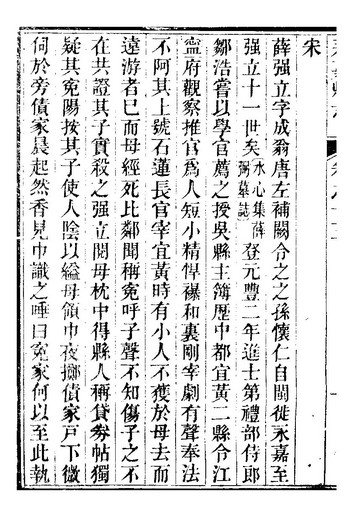 宋
薛强立字成翁唐左補闕令之之孫懷仁自閩徙永嘉至
强立十一世矣水心集薛弼墓誌登元豐二年進士第禮部侍郎
鄒浩嘗以學官薦之授吳縣主簿歷中都宜黃二縣令江
寧府觀察推官爲人短小精悍襮和裏剛宰劇有聲奉法
不阿其上號石蓮長官宰宜黃時有小人不獲於母去而
遠游者已而母經死比鄰聞稱冤呼子聲不知傷子之不
在共證其子實殺之强立閱母枕中得縣人稱貸劵帖獨
疑其冤陽按其子使人陰以縊母領巾夜擲債家戸下微
伺於旁債家晨起然香見巾識之唾曰冤家何以至此執